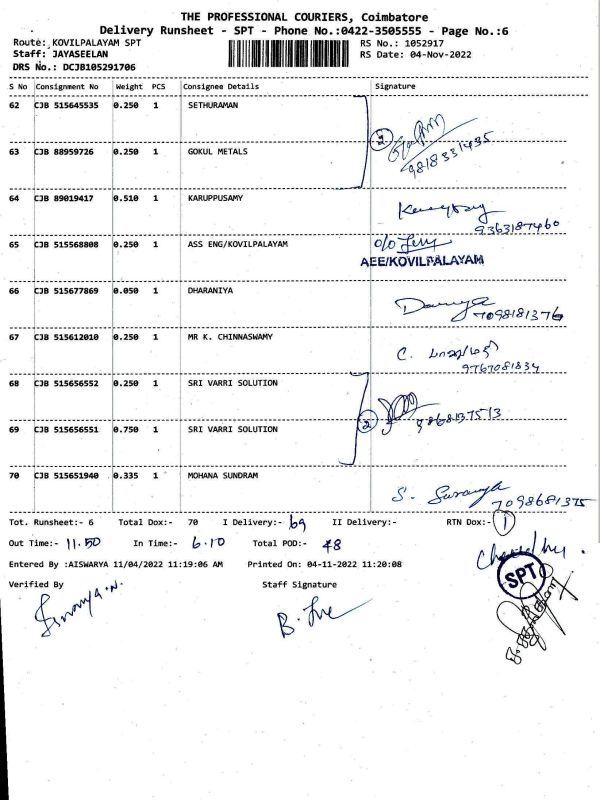 THE PROFESSIONAL COURIERS, Coimbatore
Delivery Runsheet - SPT - Phone No.:0422-3505555 - Page No.:6
Route: KOVILPALAYAM SPT RS No.: 1052917
Staff: JAYASEELAN RS Date: 04-Nov-2022
DRS No.: DCJB105291706
S No Consignment No Weight PCS Consignee Details Signature
62 CJB 515645535 0.250 1 SETHURAMAN
2
63 CJB 88959726 0.250 1 GOKUL METALS
9818331495
64 CJB 89019417 0.510 1 KARUPPUSAMY
9363187460
65 CJB 515568808 0.250 1 ASS ENG/KOVILPALAYAM
AEE/KOVILPALAYAM
66 CJB 515677869 0.050 1 DHARANIYA
7098181376
67 CJB 515612010 0.250 1 MR K. CHINNASWAMY
C.
9767081834
68 CJB 515656552 0.250 1 SRI VARRI SOLUTION
2 9868137513
69 CJB 515656551 0.750 1 SRI VARRI SOLUTION
70 CJB 515651940 0.335 1 MOHANA SUNDRAM
S. 7098681375
Tot. Runsheet:- 6 Total Dox:- 70 I Delivery:- 69 II Delivery:- RTN Dox:- 1
Out Time:- 11.50 In Time:- 6.10 Total POD:- 48
Entered By :AISWARYA 11/04/2022 11:19:06 AM Printed On: 04-11-2022 11:20:08
SPT
Verified By Staff Signature